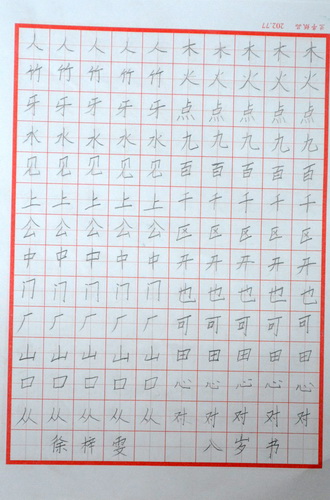 人人人人人木木木木木
竹竹竹竹竹火火火火火
牙牙牙牙牙点点点点点
水水水水水九九九九九
见见见见见百百百百百
上上上上上千千千千千
公公公公公区区区区区
中中中中中开开开开开
门门门门门也也也也也
厂厂厂厂厂可可可可可
山山山山山田田田田田
口口口口口心心心心心
从从从从从对对对对对
徐梓雯 岁